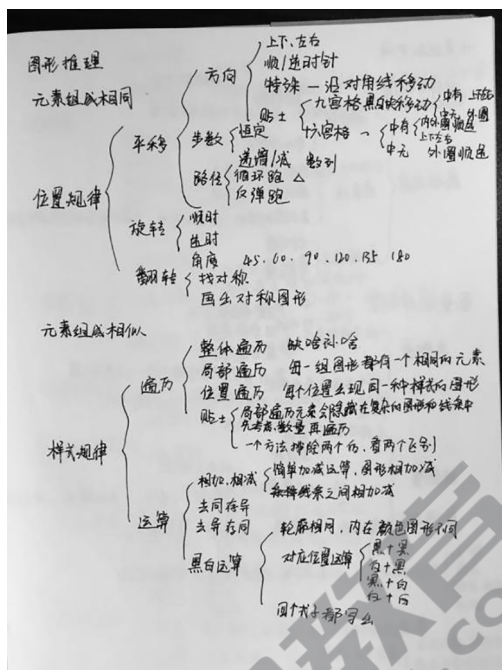 图形推理
元素组成相同
位置规律
平移
方向
上下、左右
顺/逆时针
特殊 — 沿对角线移动
贴士
九宫格黑块移动
中有 上下左右
中无 外圈
十六宫格
中有
内外圈顺逆
上下左右
中无 外圈顺逆
步数
恒定
递增/减 数列
路径
循环跑
反弹跑
旋转
顺时
逆时
角度 45. 60. 90. 120. 135 180
翻转
找对称
画出对称图形
元素组成相似
样式规律
遍历
整体遍历 缺啥补啥
局部遍历 每一组图形都有一个相同的元素
位置遍历 每个位置出现同一种样式的图形
贴士
局部遍历元素会隐藏在复杂的图形和线条中
先考虑数量再遍历
一个方法排除两个的,看两个区别
运算
相加、相减
简单加减运算,图形相加减
每种线条之间相加减
去同存异
去异存同
黑白运算
轮廓相同,内在颜色图形不同
对应位置运算
黑+黑
白+黑
黑+白
白+白
四个式子都写出
教育